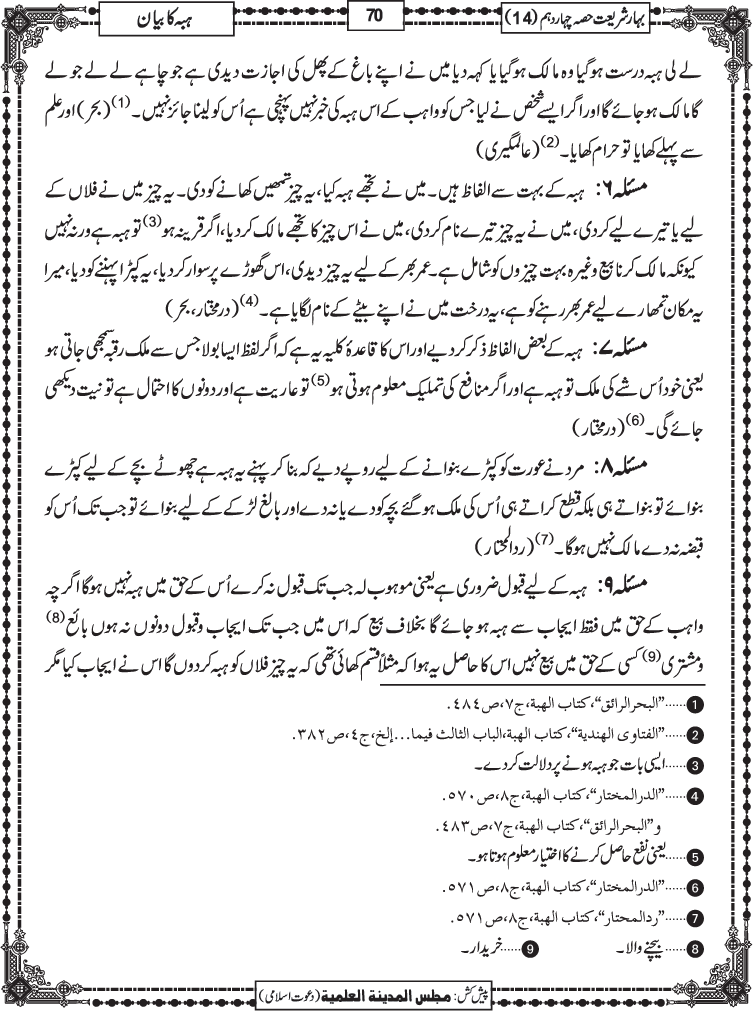 بہارِ شریعت حصہ چہاردہم (14)
70
ہبہ کا بیان
لے لی ہبہ درست ہوگیا وہ مالک ہوگیا یا کہہ دیا میں نے اپنے باغ کے پھل کی اجازت دیدی ہے جو چاہے لے لے جو لے
گا مالک ہوجائے گا اور اگر ایسے شخص نے لیا جس کو واہب کے اس ہبہ کی خبر نہیں پہنچی ہے اُس کو لینا جائز نہیں۔(1) (بحر) اور علم
سے پہلے کھایا تو حرام کھایا۔(2) (عالمگیری)
مسئلہ ۶: ہبہ کے بہت سے الفاظ ہیں۔ میں نے تجھے ہبہ کیا، یہ چیز تمھیں کھانے کو دی۔ یہ چیز میں نے فلاں کے
لیے یا تیرے لیے کردی، میں نے یہ چیز تیرے نام کردی، میں نے اس چیز کا تجھے مالک کردیا، اگر قرینہ ہو(3) تو ہبہ ہے ورنہ نہیں
کیونکہ مالک کرنا بیع وغیرہ بہت چیزوں کو شامل ہے۔ عمر بھر کے لیے یہ چیز دیدی، اس گھوڑے پر سوار کردیا، یہ کپڑا پہننے کو دیا، میرا
یہ مکان تمھارے لیے عمر بھر رہنے کو ہے، یہ درخت میں نے اپنے بیٹے کے نام لگایا ہے۔(4) (درمختار، بحر)
مسئلہ ۷: ہبہ کے بعض الفاظ ذکر کردیے اور اس کا قاعدۂ کلیہ یہ ہے کہ اگر لفظ ایسا بولا جس سے ملک رقبہ سمجھی جاتی ہو
یعنی خود اُس شے کی ملک تو ہبہ ہے اور اگر منافع کی تملیک معلوم ہوتی ہو(5) تو عاریت ہے اور دونوں کا احتمال ہے تو نیت دیکھی
جائے گی۔(6) (درمختار)
مسئلہ ۸: مرد نے عورت کو کپڑے بنوانے کے لیے روپے دیے کہ بنا کر پہنے یہ ہبہ ہے چھوٹے بچے کے لیے کپڑے
بنوائے تو بنواتے ہی بلکہ قطع کراتے ہی اُس کی ملک ہوگئے بچہ کو دے یا نہ دے اور بالغ لڑکے کے لیے بنوائے تو جب تک اُس کو
قبضہ نہ دے مالک نہیں ہوگا۔(7) (ردالمحتار)
مسئلہ ۹: ہبہ کے لیے قبول ضروری ہے یعنی موہوب لہ جب تک قبول نہ کرے اُس کے حق میں ہبہ نہیں ہوگا اگرچہ
واہب کے حق میں فقط ایجاب سے ہبہ ہوجائے گا بخلاف بیع کہ اس میں جب تک ایجاب وقبول دونوں نہ ہوں بائع(8)
ومشتری(9) کسی کے حق میں بیع نہیں اس کا حاصل یہ ہوا کہ مثلاً قسم کھائی تھی کہ یہ چیز فلاں کو ہبہ کردوں گا اس نے ایجاب کیا مگر
1......”البحرالرائق“، کتاب الھبة، ج٧، ص٤٨٤.
2......”الفتاوی الھندیة“، کتاب الھبة، الباب الثالث فیما...إلخ، ج٤، ص٣٨٢.
3......ایسی بات جو ہبہ ہونے پر دلالت کردے۔
4......”الدرالمختار“، کتاب الھبة، ج٨، ص٥٧٠.
و”البحرالرائق“، کتاب الھبة، ج٧، ص٤٨٣.
5......یعنی نفع حاصل کرنے کا اختیار معلوم ہوتا ہو۔
6......”الدرالمختار“، کتاب الھبة، ج٨، ص٥٧١.
7......”ردالمحتار“، کتاب الھبة، ج٨، ص٥٧١.
8......بیچنے والا۔ 9......خریدار۔
پیش کش: مجلس المدینة العلمیة (دعوت اسلامی)